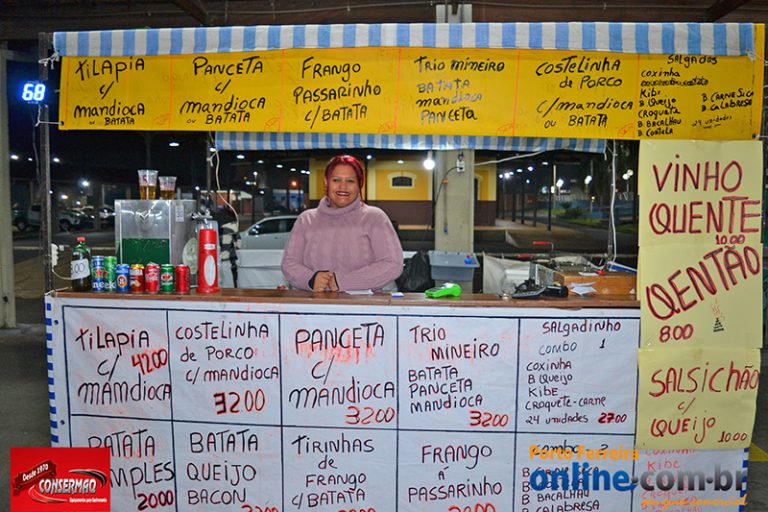 68
TILAPIA
C/
MANDIOCA
OU BATATA
PANCETA
C/
MANDIOCA
OU BATATA
FRANGO
PASSARINHO
C/BATATA
TRIO MINEIRO
BATATA
MANDIOCA
PANCETA
COSTELINHA
DE PORCO
C/MANDIOCA
OU BATATA
SALGADOS
COXINHA
KIBE
B QUEIJO
CROQUETA
B BACALHAU
B COSTELA
B CARNE SICA
B CALABRESA
24 UNIDADES
VINHO
QUENTE
10.00
QENTÃO
8.00
SALSICHÃO
C/
QUEIJO
10.00
TILAPIA
C/ 4200
MAMDIOCA
COSTELINHA
DE PORCO
C/MANDIOCA
3200
PANCETA
C/
MANDIOCA
3200
TRIO
MINEIRO
BATATA
PANCETA
MANDIOCA
3200
SALGADINHO
COMBO 1
COXINHA
B QUEIJO
KIBE
CROQUETE-CARNE
24 UNIDADES 2700
BATATA
SIMPLES
2000
BATATA
QUEIJO
BACON
3200
TIRINHAS
DE
FRANGO
C/BATATA
FRANGO
À
PASSARINHO
COMBO 2
B BACALHAU
B CALABRESA
Desde 1970
CONSERMAQ
Equipamentos para Gastronomia
Porto Ferreira
online.com.br